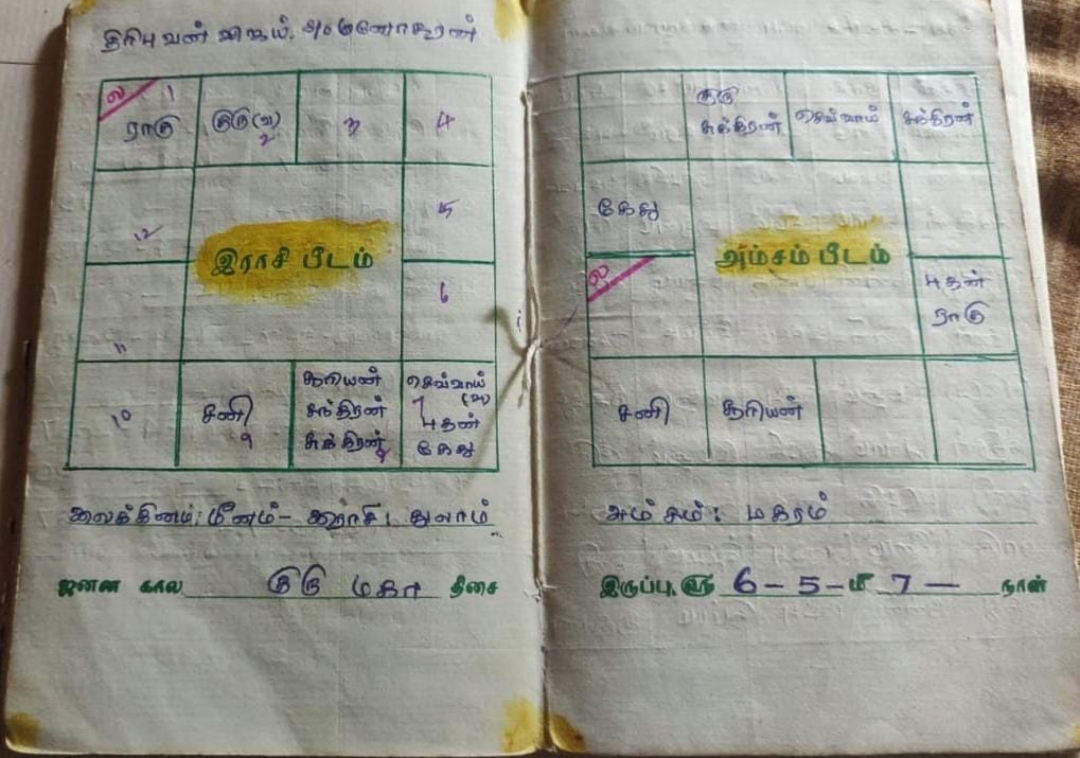 திரிபுவன் விஜய். S/o மனோகரன்
ல 1
ராகு
குரு (வ)
2
3
4
12
இராசி பீடம்
5
11
6
10
சனி
9
சூரியன்
சந்திரன்
சுக்கிரன் 8
செவ்வாய்
(வ)
7
புதன்
கேது
லைக்கினம்: மீனம் - இராசி: துலாம்
ஜனன கால குரு மகா திசை
குரு
சுக்கிரன்
செவ்வாய்
சந்திரன்
கேது
அம்சம் பீடம்
ல
புதன்
ராகு
சனி
சூரியன்
அம்சம்: மகரம்
இருப்பு, ௵ 6 - 5 - ௴ 7 - நாள்